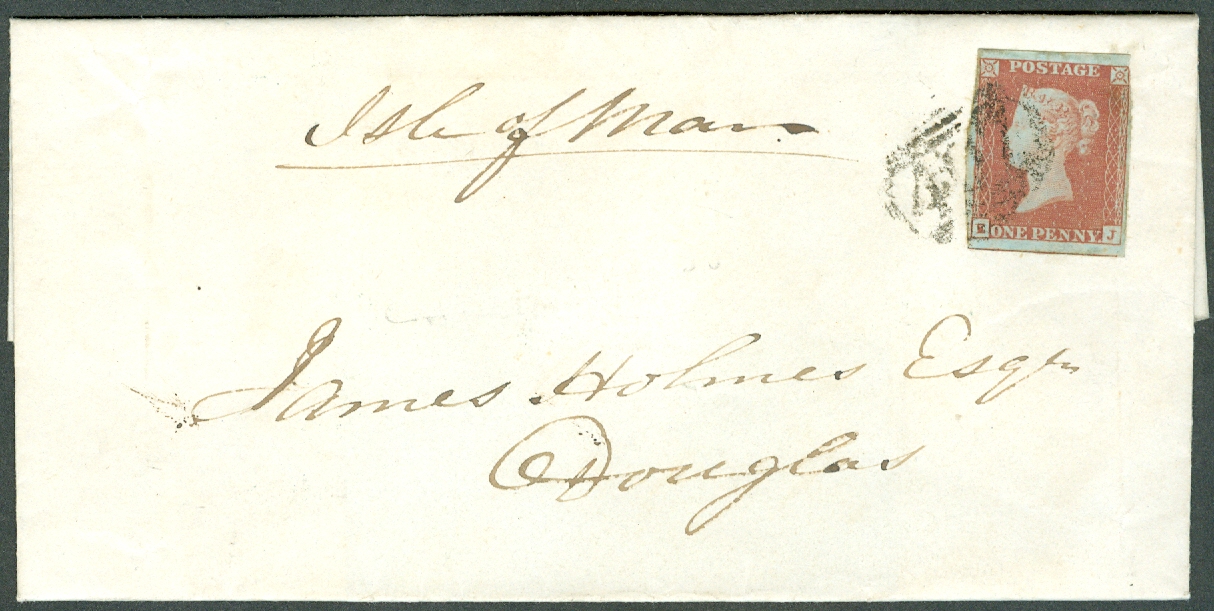 Isle of Man
POSTAGE
E ONE PENNY J
James Holmes Esqr
Douglas